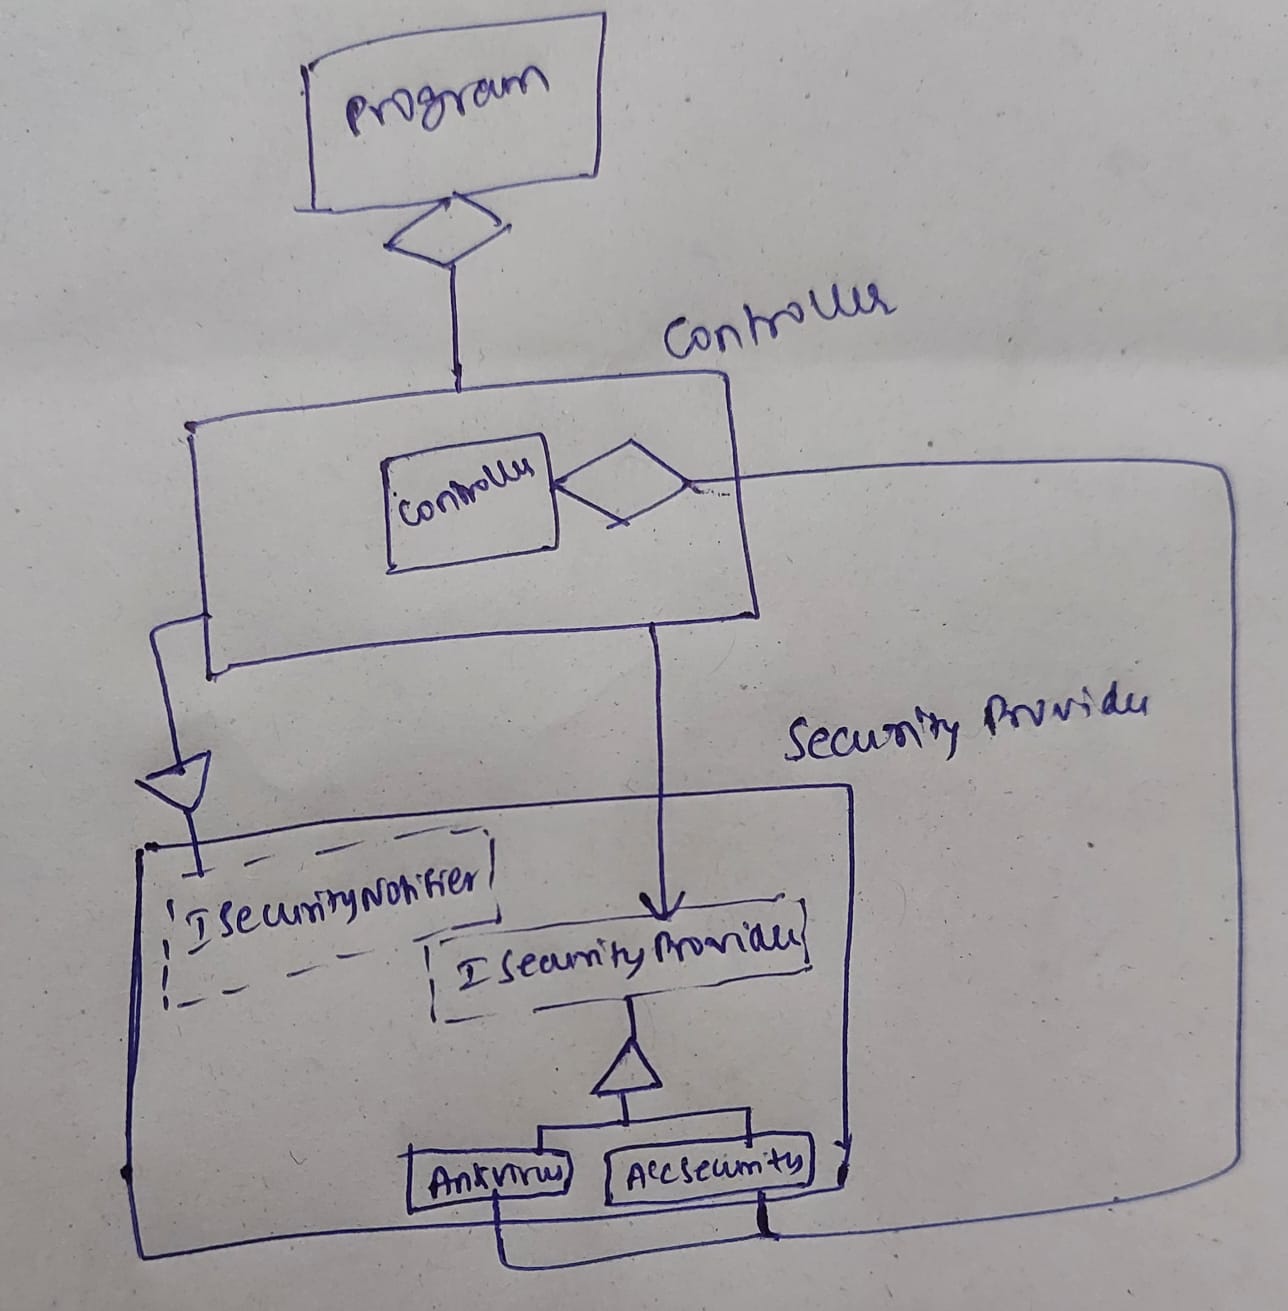 Program
Controller
Controller
Security Provider
ISecurityNotifier
ISecurityProvider
Antivirus
AccSecurity